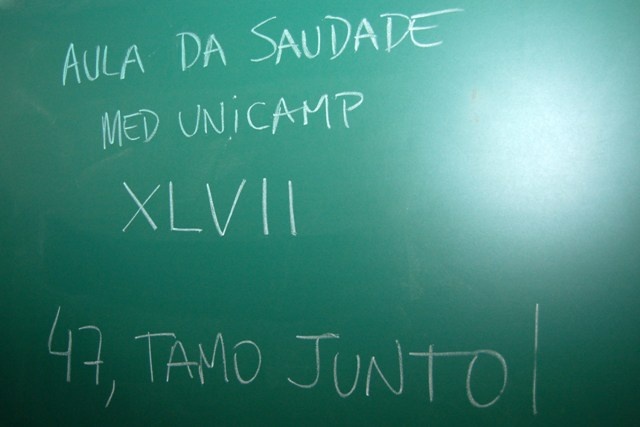 AULA DA SAUDADE
MED UNICAMP
XLVII
47, TAMO JUNTO!